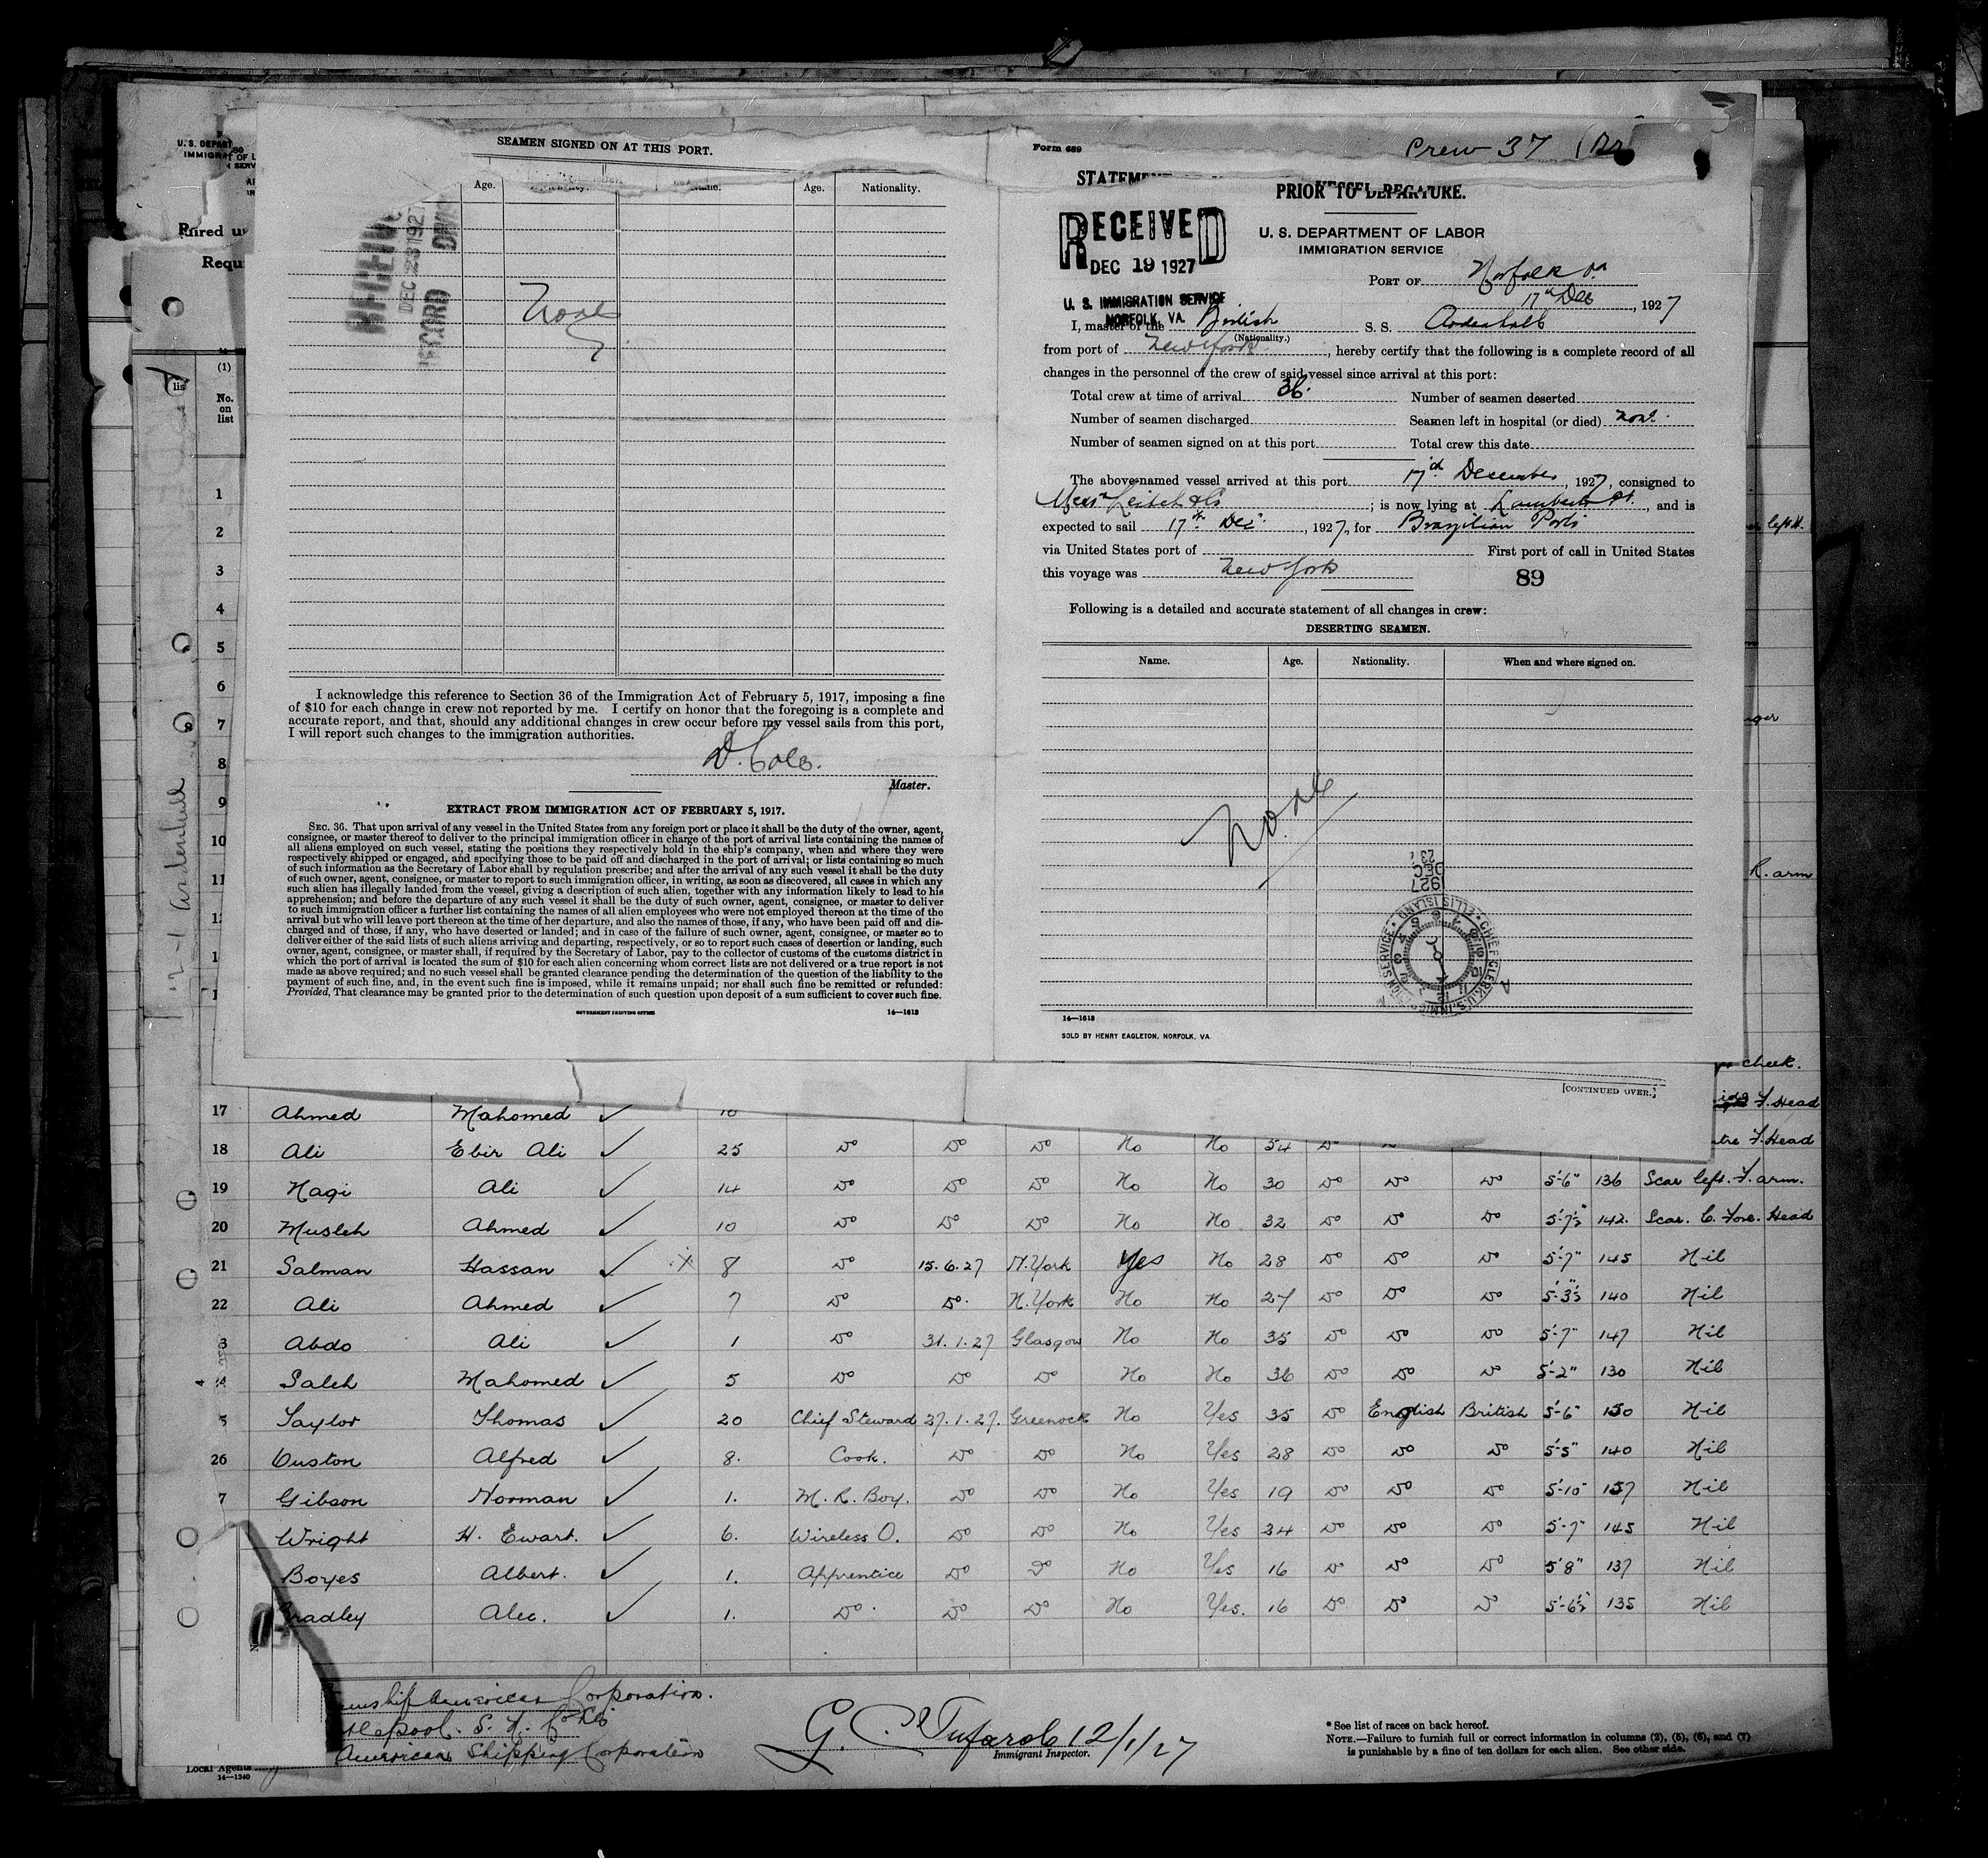 SEAMEN SIGNED ON AT THIS PORT.
Age.
Age.
Nationality.
DEC 23 192
None
I acknowledge this reference to Section 36 of the Immigration Act of February 5, 1917, imposing a fine
of $10 for each change in crew not reported by me. I certify on honor that the foregoing is a complete and
accurate report, and that, should any additional changes in crew occur before my vessel sails from this port,
I will report such changes to the immigration authorities.
Master.
EXTRACT FROM IMMIGRATION ACT OF FEBRUARY 5, 1917.
SEC. 36. That upon arrival of any vessel in the United States from any foreign port or place it shall be the duty of the owner, agent,
consignee, or master thereof to deliver to the principal immigration officer in charge of the port of arrival lists containing the names of
all aliens employed on such vessel, stating the positions they respectively hold in the ship's company, when and where they were
respectively shipped or engaged, and specifying those to be paid off and discharged in the port of arrival; or lists containing so much
of such information as the Secretary of Labor shall by regulation prescribe; and after the arrival of any such vessel it shall be the duty
of such owner, agent, consignee, or master to report to such immigration officer, in writing, as soon as discovered, all cases in which any
such alien has illegally landed from the vessel, giving a description of such alien, together with any information likely to lead to his
apprehension; and before the departure of any such vessel it shall be the duty of such owner, agent, consignee, or master to deliver
to such immigration officer a further list containing the names of all alien employees who were not employed thereon at the time of the
arrival but who will leave port thereon at the time of her departure, and also the names of those, if any, who have been paid off and dis-
charged and of those, if any, who have deserted or landed; and in case of the failure of such owner, agent, consignee, or master so to
deliver either of the said lists of such aliens arriving and departing, respectively, or so to report such cases of desertion or landing, such
owner, agent, consignee, or master shall, if required by the Secretary of Labor, pay to the collector of customs of the customs district in
which the port of arrival is located the sum of $10 for each alien concerning whom correct lists are not delivered or a true report is not
made as above required; and no such vessel shall be granted clearance pending the determination of the question of the liability to the
payment of such fine, and, in the event such fine is imposed, while it remains unpaid; nor shall such fine be remitted or refunded:
Provided, That clearance may be granted prior to the determination of such question upon deposit of a sum sufficient to cover such fine.
GOVERNMENT PRINTING OFFICE
14—1613
Form 689
Crew 37
PRIOR TO DEPARTURE.
RECEIVED
DEC 19 1927
U. S. IMMIGRATION SERVICE
NORFOLK, VA.
U. S. DEPARTMENT OF LABOR
IMMIGRATION SERVICE
PORT OF Norfolk Va
17th Dec, 1927
I, master of the British S. S. Ardenhall
(Nationality.)
from port of New York, hereby certify that the following is a complete record of all
changes in the personnel of the crew of said vessel since arrival at this port:
Total crew at time of arrival 36. Number of seamen deserted
Number of seamen discharged Seamen left in hospital (or died) None
Number of seamen signed on at this port Total crew this date
The above-named vessel arrived at this port 17th December, 1927, consigned to
; is now lying at Lamberts Pt., and is
expected to sail 17th Dec., 1927, for Brazilian Ports
via United States port of First port of call in United States
this voyage was New York
89
Following is a detailed and accurate statement of all changes in crew:
DESERTING SEAMEN.
Name. Age. Nationality. When and where signed on.
None
14—1613
SOLD BY HENRY EAGLETON, NORFOLK, VA
[CONTINUED OVER.]
(1)
No.
on
list
1
2
3
4
5
6
7
8
9
10
11
R. arm
cheek.
17 Ahmed Mahomed ✓ F. Head
18 Ali Ebir Ali ✓ 25 Do Do Do No No 54 Do F. Head
19 Nagi Ali ✓ 14 Do Do Do No No 30 Do Do Do 5'-6" 136 Scar left. F. arm.
20 Musleh Ahmed ✓ 10 Do Do Do No No 32 Do Do Do 5'-7½" 142. Scar. C. Fore. Head
21 Salman Hassan ✓ 8 Do 15.6.27 N. York Yes No 28 Do Do Do 5'-7" 145 Nil
22 Ali Ahmed ✓ 7 Do Do. N. York No No 27 Do Do Do 5'-3½" 140 Nil
3 Abdo Ali ✓ 1 Do 31.1.27 Glasgow No No 35 Do Do Do 5'-7" 147 Nil
4 Saleh Mahomed ✓ 5 Do Do Do No No 36 Do Do Do 5'-2" 130 Nil
5 Taylor Thomas ✓ 20 Chief Steward 27.1.27. Greenock No Yes 35 Do English British 5'-6" 150 Nil
26 Ouston Alfred ✓ 8. Cook. Do Do No Yes 28 Do Do Do 5'-5" 140 Nil
7 Gibson Norman ✓ 1. M. R. Boy. Do Do No Yes 19 Do Do Do 5'-10" 157 Nil
Wright H. Ewart. ✓ 6. Wireless O. Do Do No Yes 24 Do Do Do 5'-7" 145 Nil
Boyes Albert. ✓ 1. Apprentice Do Do No Yes 16 Do Do Do 5'8" 137 Nil
Bradley Alec. ✓ 1. Do. Do Do No Yes. 16 Do Do Do 5'-6½" 135 Nil
American Corporation.
American Shipping Corporation
Local Agents
14—1240
12/1/27
Immigrant Inspector.
* See list of races on back hereof.
NOTE.—Failure to furnish full or correct information in columns (2), (5), (6), and (7)
is punishable by a fine of ten dollars for each alien. See other side.